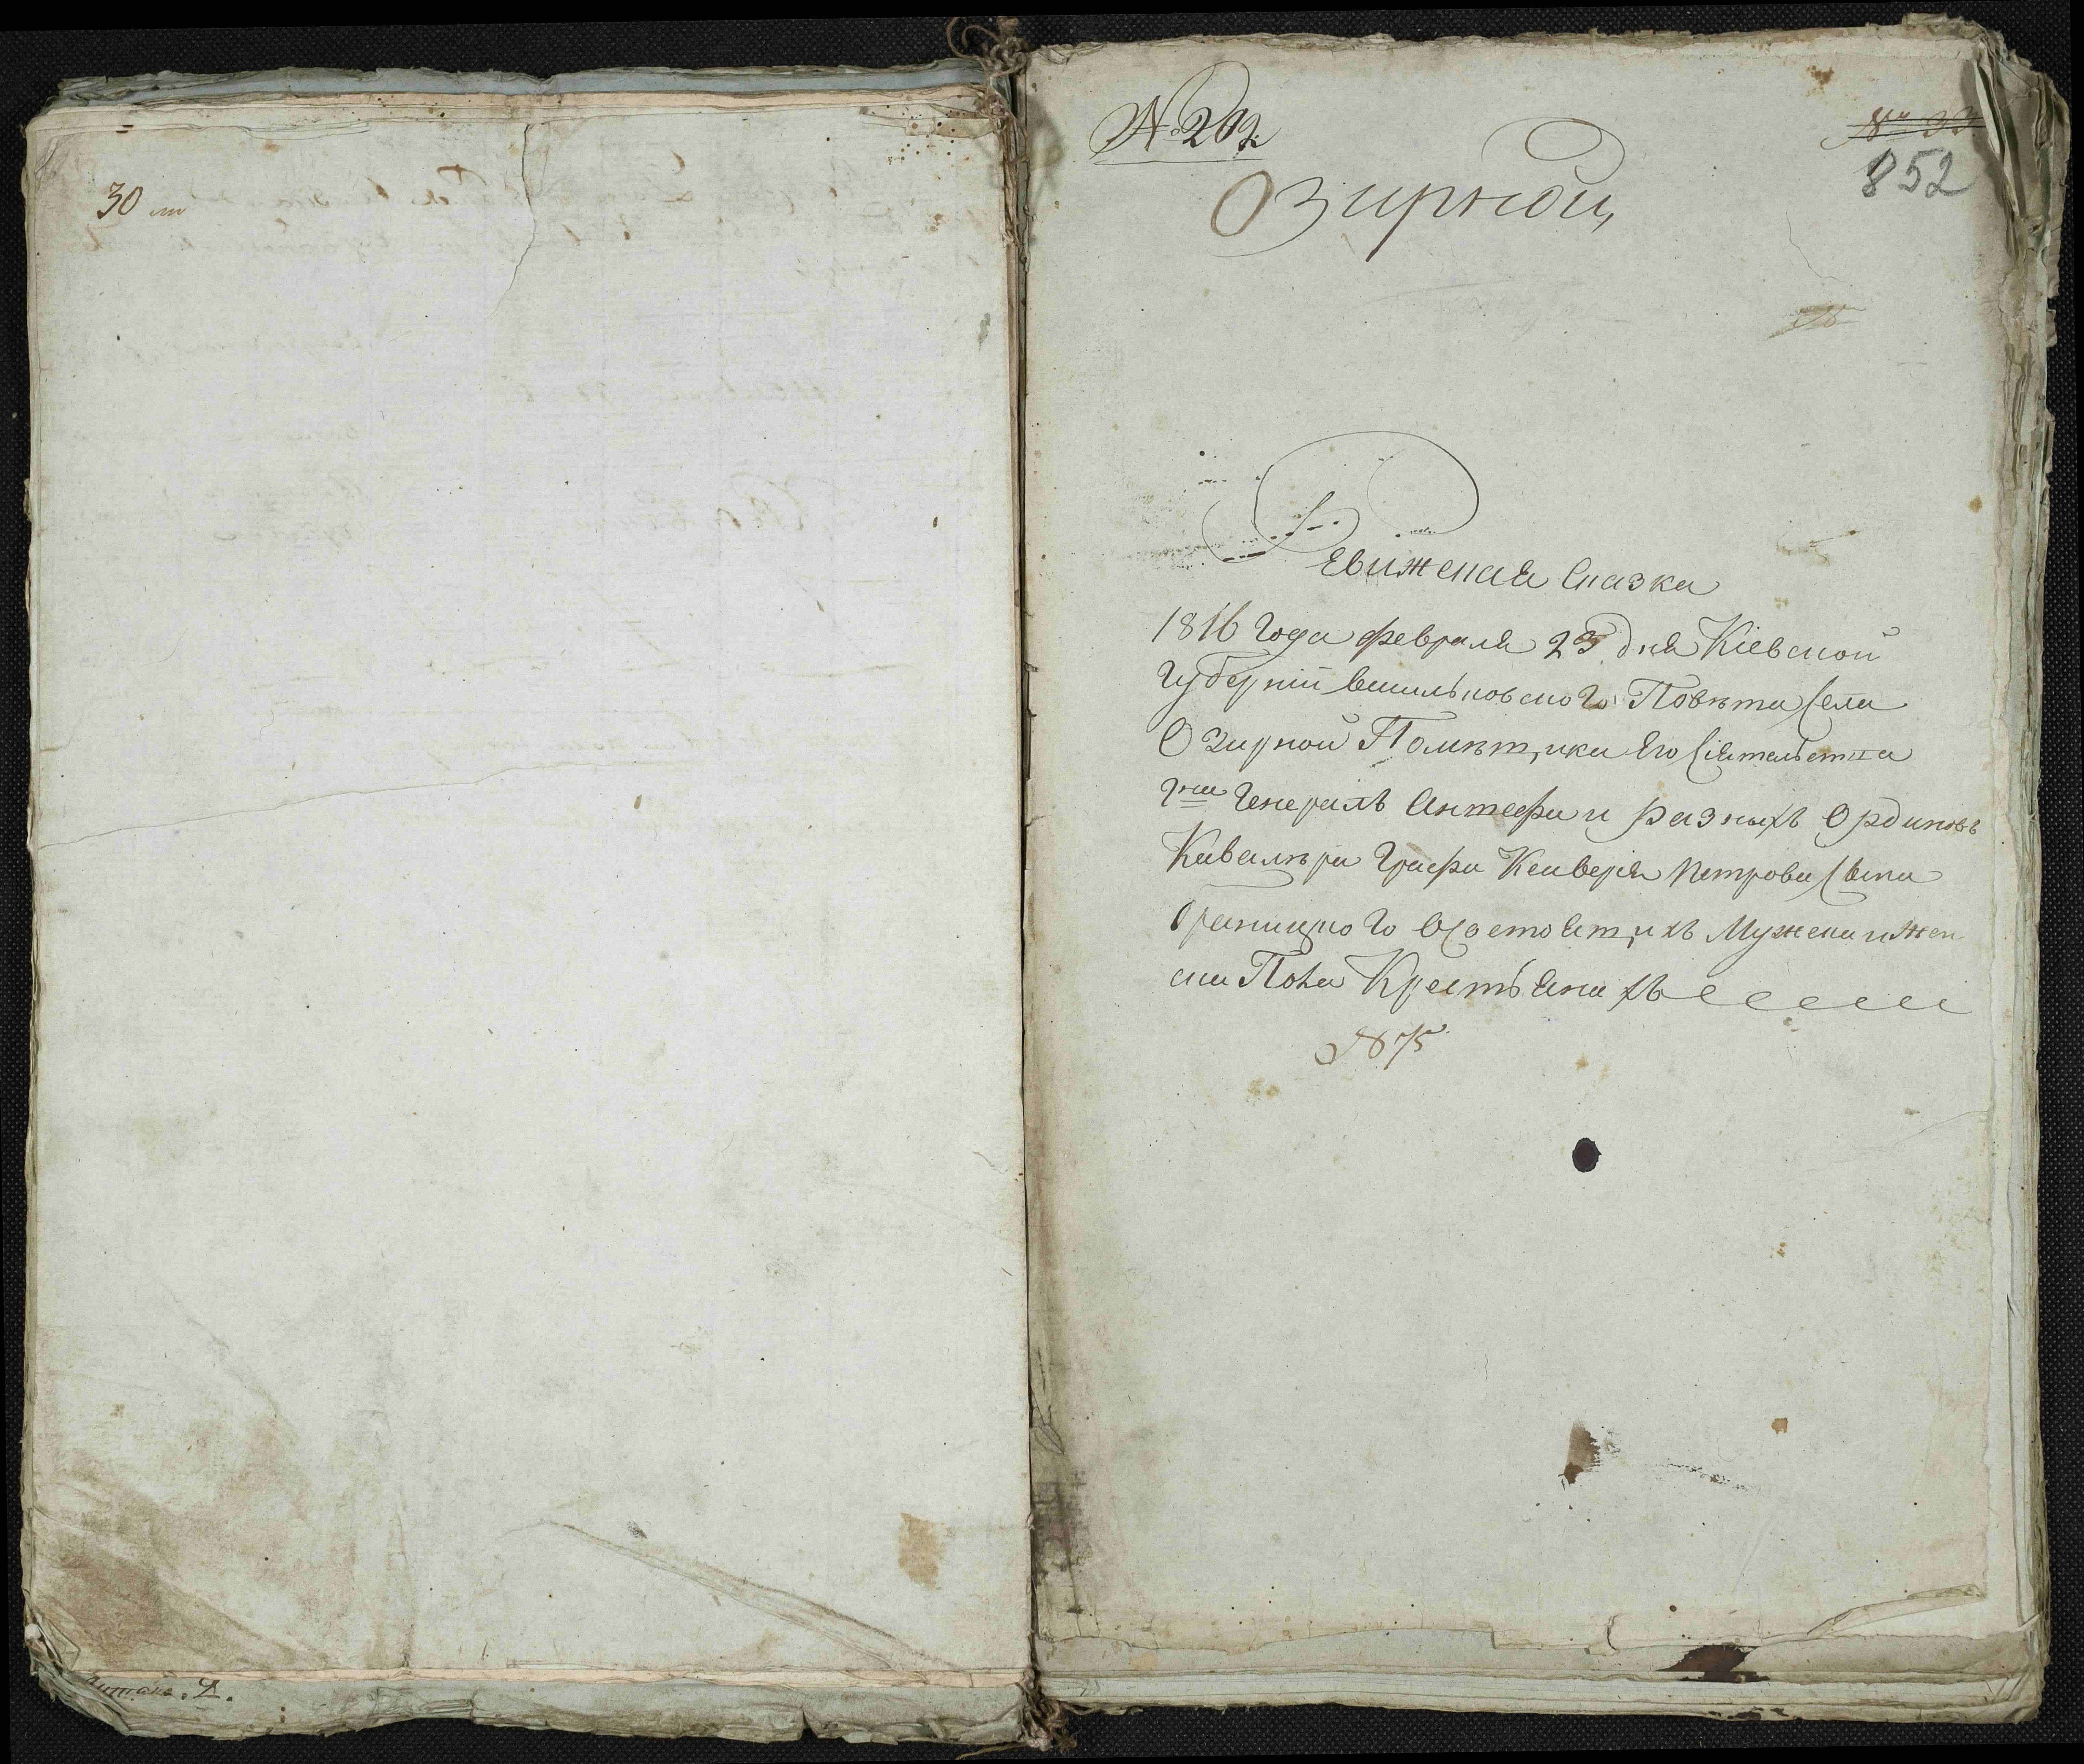 30
№ 202
852
Озирной
Ревижская Сказка
1816 года февраля 23 дня Кіевской
Губерніи Васильковского Повѣта Села
Озирной Помѣщика Его Сіятельства
Гна Генералъ Аншефа и разныхъ Ординовъ
Кавалѣра Графа Ксаверія Петрова Сына
Браницкого О Состоящихъ Мужеска и Жен
ска Пола Крестьянахъ
№ 75